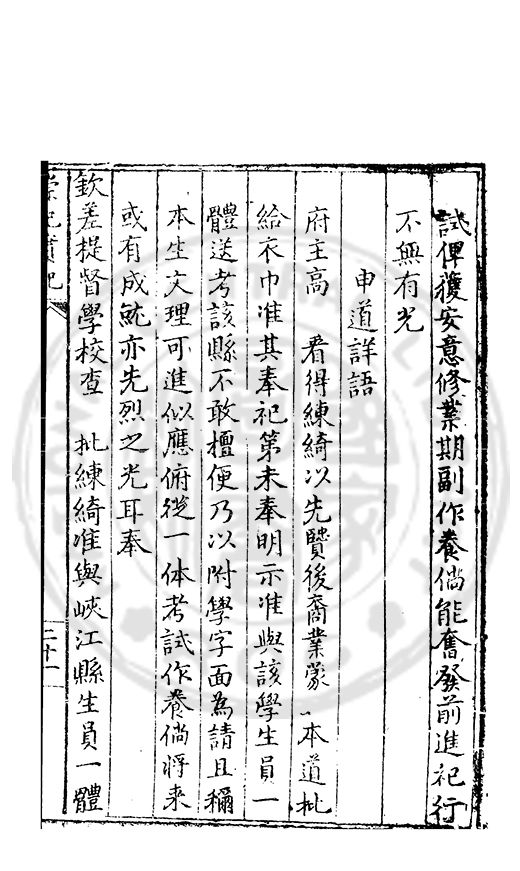 試俾獲安意修業期副作養倘能奮發前進祀行
不無有光
申道詳語
府主高 看得練綺以先賢後裔業蒙 本道批
給衣巾准其奉祀第未奉明示准與該學生員一
體送考該縣不敢擅便乃以附學字面為請且稱
本生文理可進似應俯從一体考試作養倘將来
或有成就亦先烈之光耳奉
欽差提督學校查 批練綺准與峽江縣生員一體
崇祀實紀
二十一